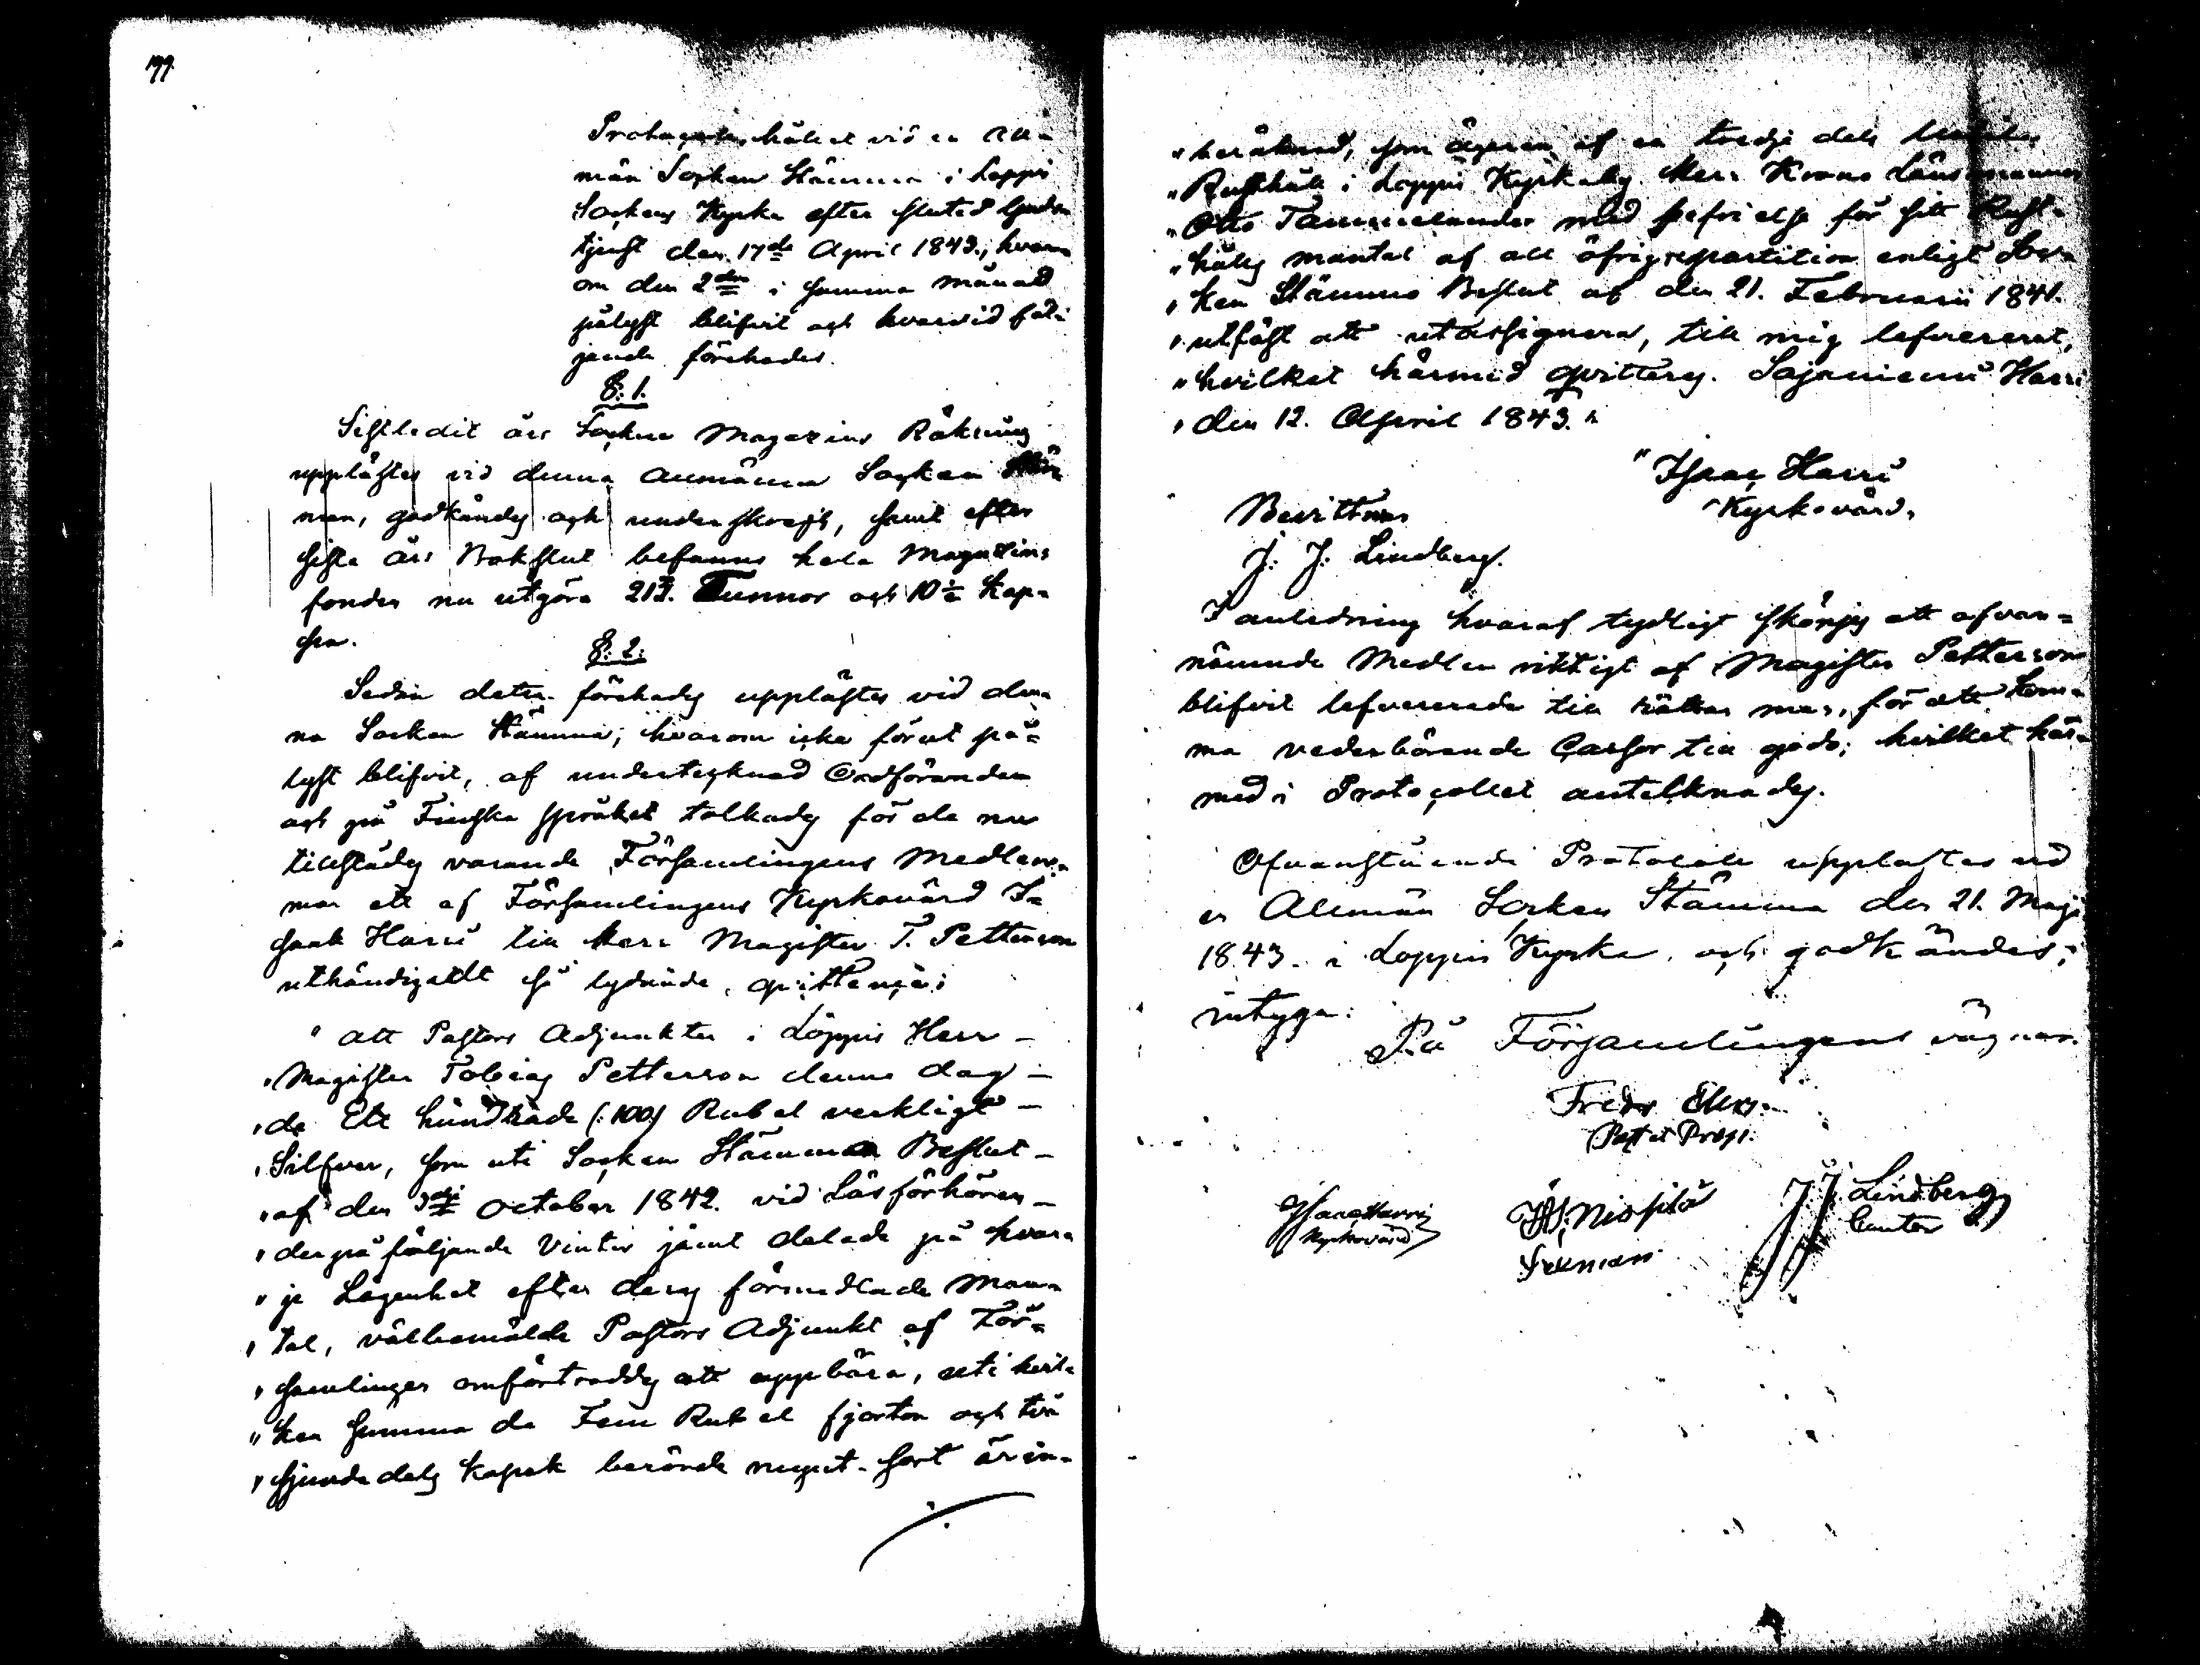 199.
Protocoll, hållet vid en All-
män Socken Stämma i Loppis
Sockens Kyrka efter slutad Guds-
tjenst den 17de April 1843, hvar-
om den 2dra i samma månad
pålyst blifvit och hvarvid föl-
jande förehades.
§: 1.
Sistledit års Socken Magazins Räkning
upplästes vid denna allmänna Socken Stäm-
man, godkändes och underskrefs, samt efter
sista års Bokslut befanns hela Magazins
fonden nu utgöra 213. Tunnor och 10½ Kap-
pa.
§: 2.
Sedan detta förehades upplästes vid den-
na Socken Stämma, hvarom icke förut på-
lyst blifvit, af undertecknad Ordföranden
och på Finska språket tolkades för de nu
tillstädes varande Församlingens Medlem-
mar ett af Församlingens Kyrkovärd I-
saak Harri till Herr Magister T. Petterson
uthändigadt så lydande qvittence:
" att Pastors Adjunkten i Loppis Herr -
" Magister Tobias Petterson denna dag -
" de Ett hundrade (: 100) Rubel verkligt -
" Silfver, som uti Socken Stämmans Beslut -
" af den 3dje October 1842. vid Läsförhören -
" derpå följande Vinter jämt delade på hvar-
" je Lägenhet efter deras förmedlade Man-
" tal, välbemälde Pastors Adjunkt af För-
" samlingen anförtroddes att uppbära, uti hvil-
" ken summa de Fem Rubel fjorton och två
" sjundedels Kopek berörde myntsort är in-
" beräknad, som ägaren af en tredje dels
" Rusthåll i Loppis Kyrkoby Herr Krono Länsmannen
" Otto Tammelander med befrielse för sitt Rust-
" hålls mantal af all öfrig repartition enligt Soc-
" ken Stämmo Beslut af den 21. Februarii 1841.
" utfäst att utassignera, till mig lefvererat,
" hvilket härmed qvitteras. Sajaniemi Harri
" den 12. April 1843. "
" Isaac Harri
" Kyrkovärd.
Bevittnar
J. J. Lindberg.
I anledning hvaraf tydligt skönjes att ofvan-
nämnde Medlen riktigt af Magister Petterson
blifvit lefvererade till rättan man, för att kom-
ma vederbörande Cassor till godo; hvilket här-
med i Protocollet antecknades.
Ofvanstående Protocoll upplästes vid
en Allmän Socken Stämma den 21. Maji
1843. i Loppis Kyrka och godkändes;
intyga:
På Församlingens vägnar
Fredr
Past et Prop:
Isaac Harri
Kyrkovärd
Nispilä
J. J. Lindberg
Cantor